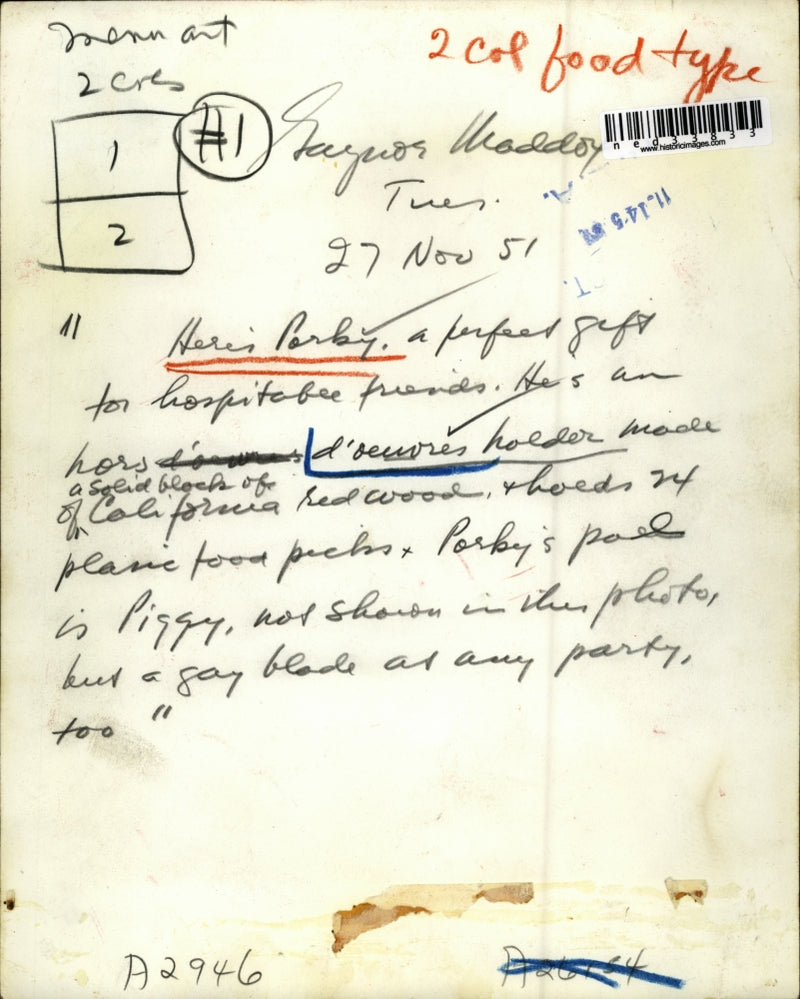 menu art
2 cols
2 col food type
1
2
#1
Gaynor Maddox
ned33833
www.historicimages.com
Tues.
27 Nov 51
11.14.5
"Here's Porky. a perfect gift
for hospitable friends. He's an
hors d'oeuvres d'oeuvres holder made
a solid block of
of California redwood, + holds 24
plasic food picks + Porky's pal
is Piggy, not shown in this photo,
but a gay blade at any party,
too"
A2946